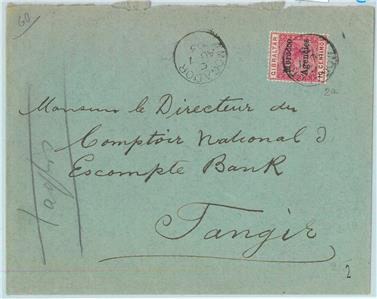 60
MOGADOR
GIBRALTAR
Morocco
Agencies
10 CENTIMOS
Monsieur le Directeur du
Comptoir National d
Escompte Bank
Tangir
2a
2